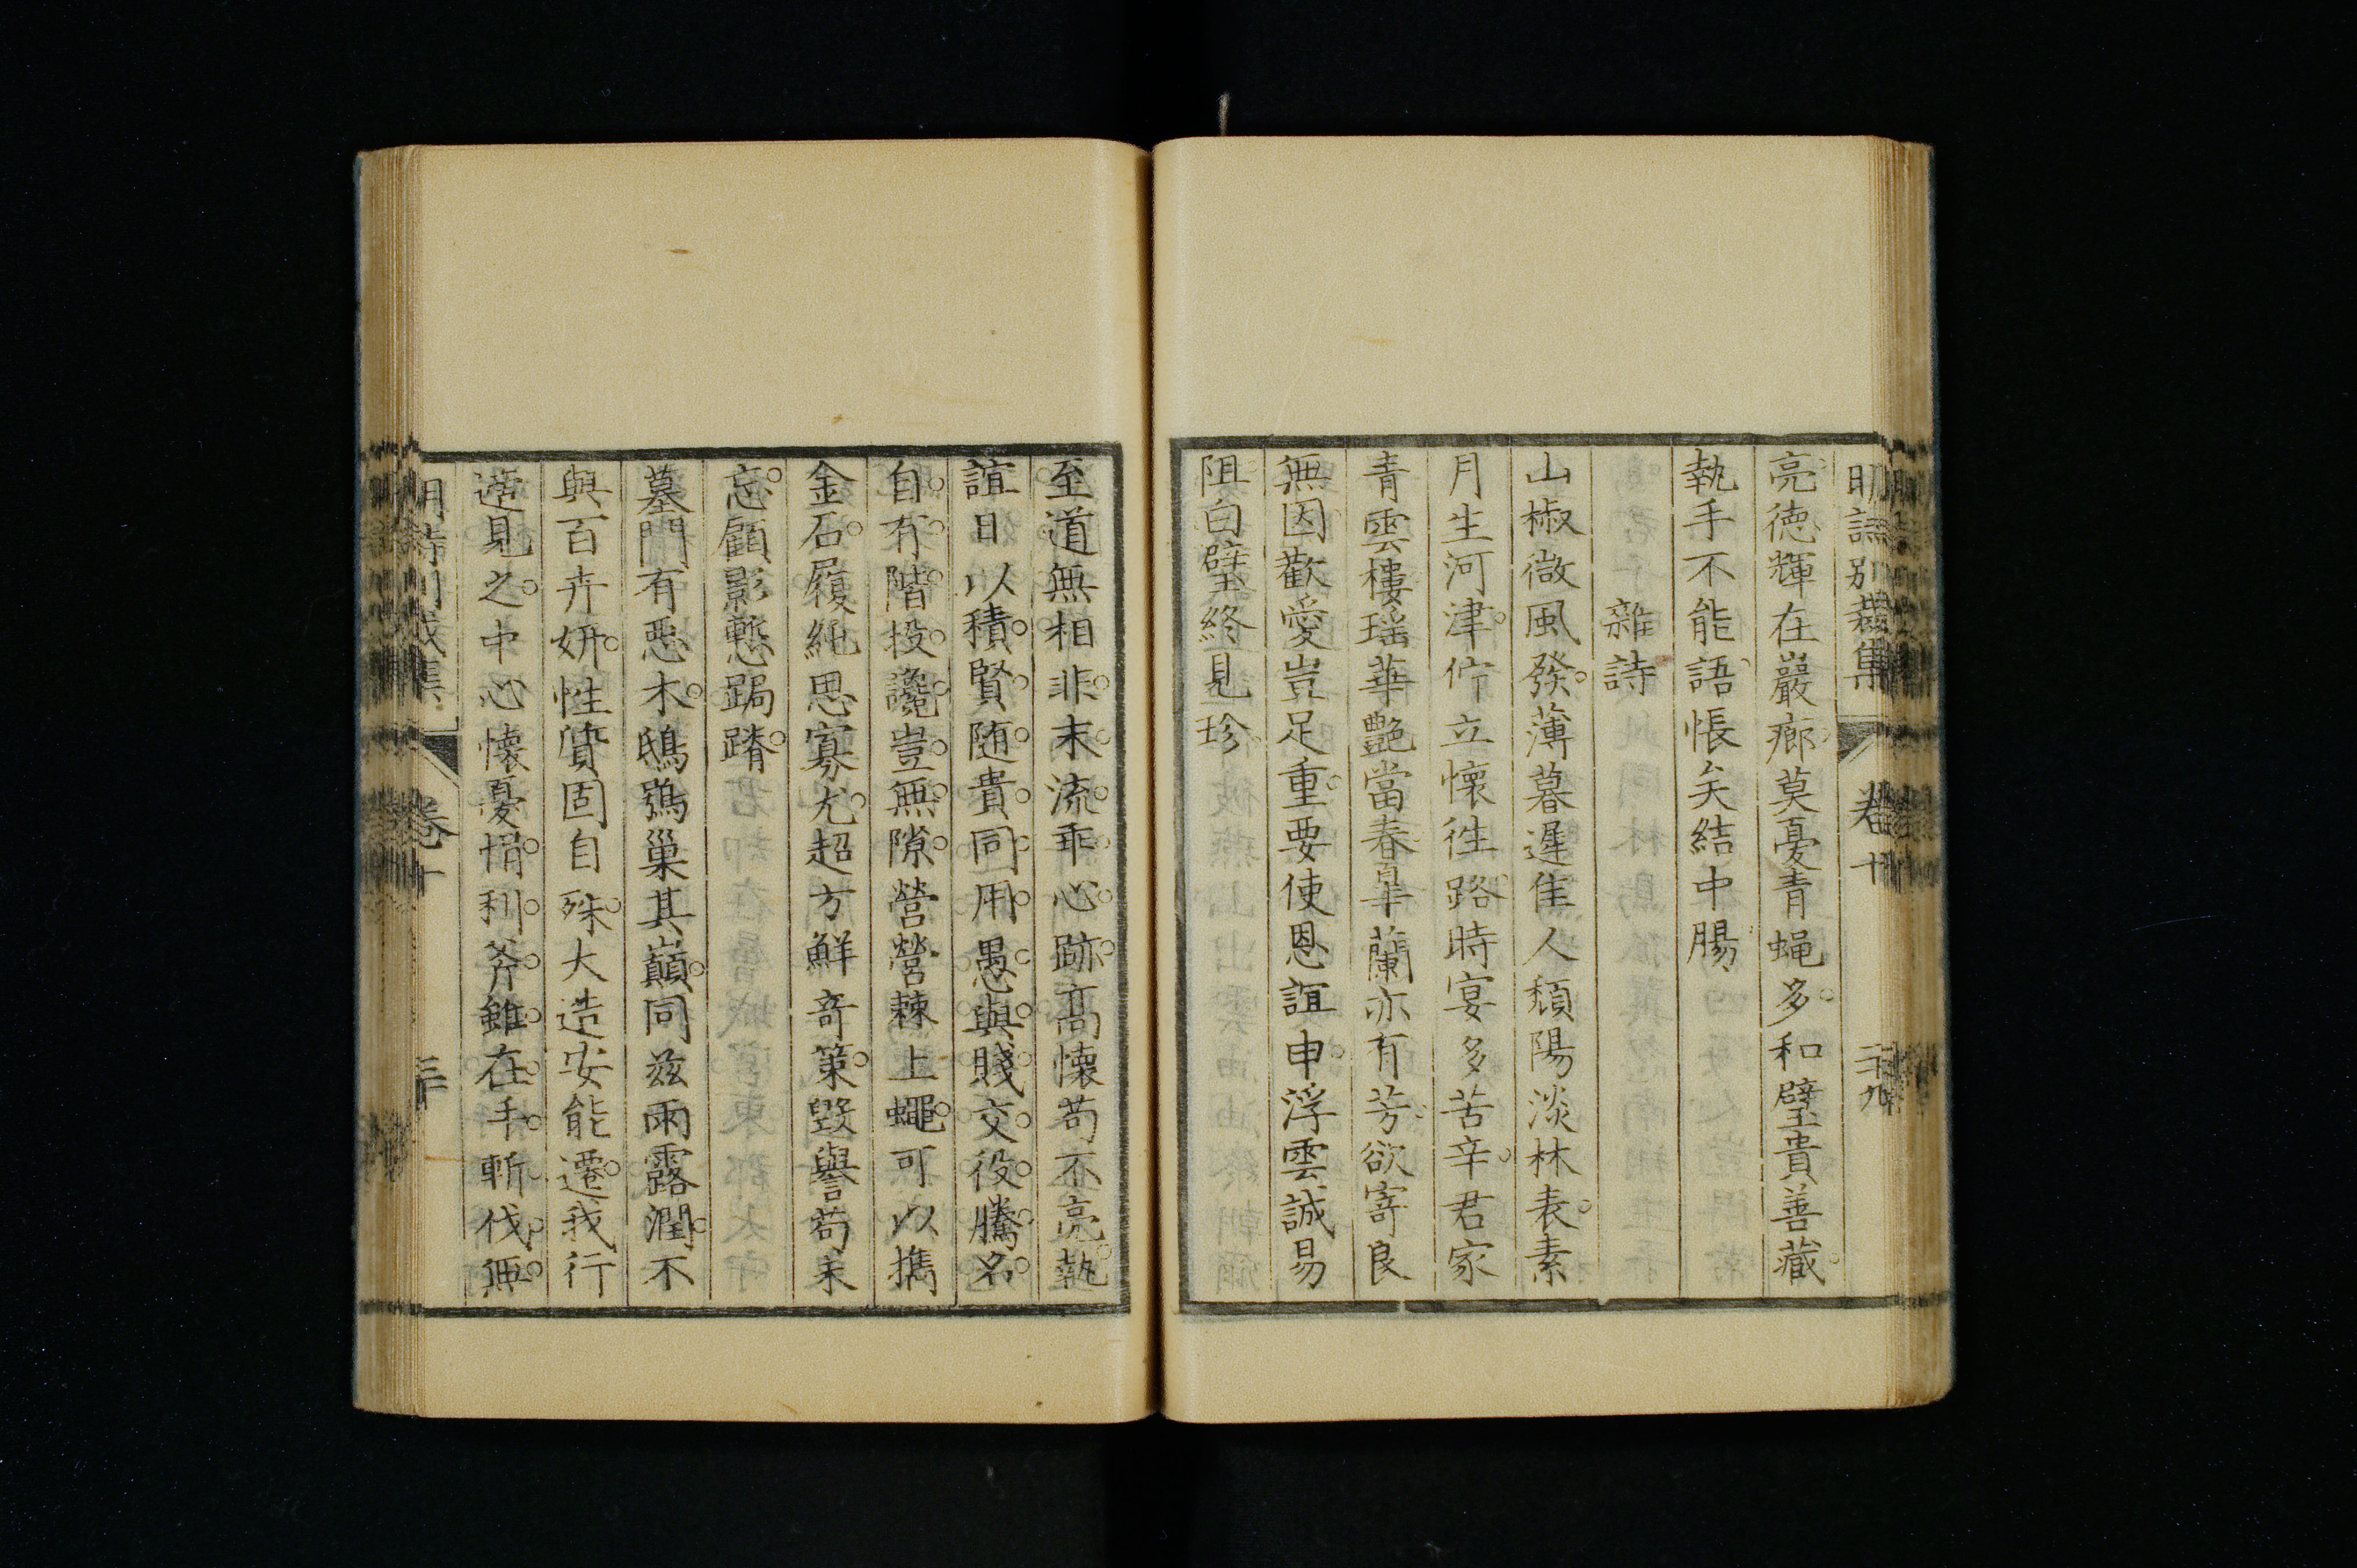 明詩別裁集 卷十 二十九
亮德輝在巖廊莫憂青蝇多和璧貴善藏
執手不能語悵矣結中腸
雜詩
山椒微風發薄暮遲佳人頹陽淡林表素
月生河津佇立懷徃路時宴多苦辛君家
青雲樓瑶華艷當春皐蘭亦有芳欲寄良
無因歡愛豈足重要使恩誼申浮雲誠易
阻白璧終見珍
至道無相非末流乖心跡高懷苟不亮執
誼日以積賢随貴同用愚與賤交役騰名
自有階投讒豈無隙營營棘上蠅可以擕
金石履純思寡尤超方鮮竒策毀譽苟未
忘顧影慙跼蹐
墓門有惡木鴟鴞巢其巔同兹雨露潤不
與百卉妍性質固自殊大造安能遷我行
適見之中心懷憂悁利斧雖在手斬伐無
明詩別裁集 卷十 三十